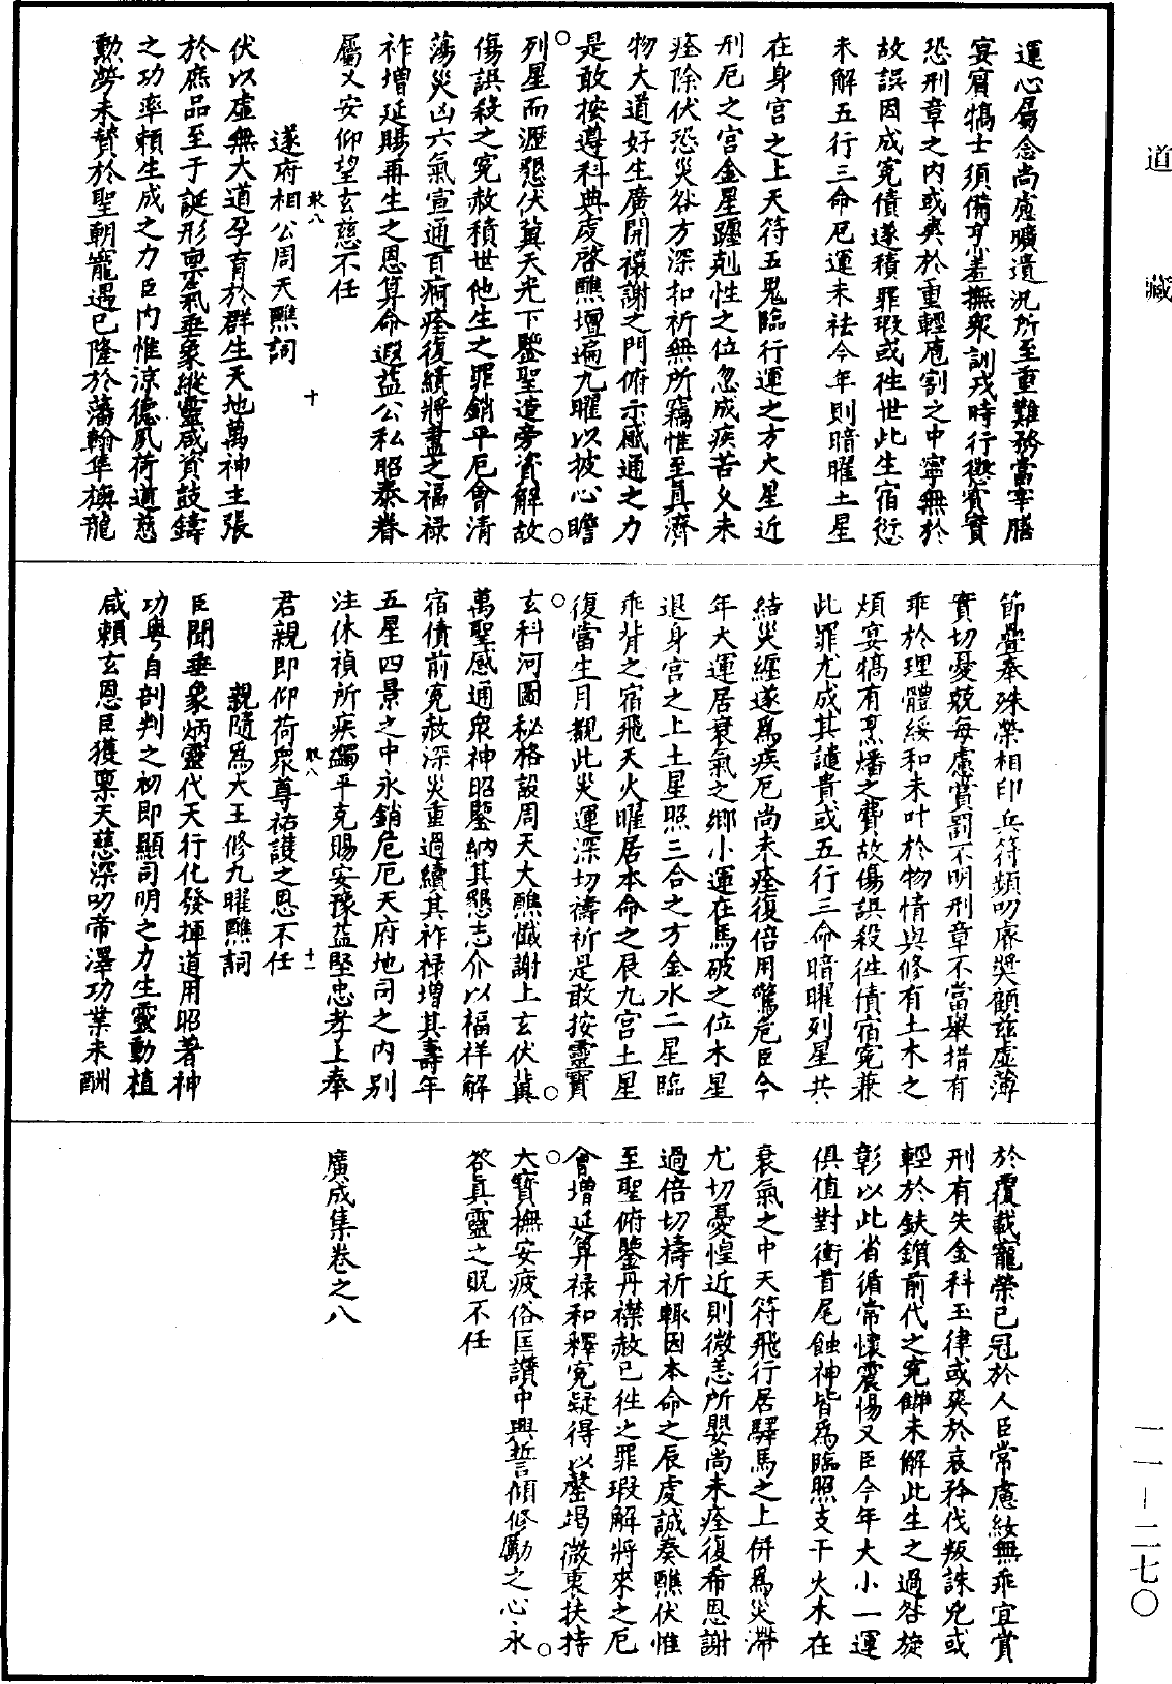 道藏
運心屬念尚慮曠遺況所至重難務當宰膳
宴賓犒士須備烹羞撫衆訓戎時行懲賞實
恐刑章之內或爽於重輕庖割之中寧無於
故誤因成冤債遂積罪瑕或往世此生宿愆
未解五行三命厄運未祛今年則暗曜土星
在身宮之上天符五鬼臨行運之方火星近
刑厄之宮金星躔剋性之位忽成疾苦久未
痊除伏恐災咎方深扣祈無所竊惟至真濟
物大道好生廣開禳謝之門俯示感通之力
是敢按遵科典虔啓醮壇遍九曜以披心瞻
列星而瀝懇伏冀天光下鑒聖造旁資解故
傷誤殺之冤赦積世他生之罪銷平厄會清
蕩災凶六氣宣通百痾痊復續將盡之福禄
祚增延賜再生之恩算命遐益公私昭泰眷
屬乂安仰望玄慈不任
敢八 十
遂府相公周天醮詞
伏以虛無大道孕育於群生天地萬神主張
於庶品至于誕形稟氣垂象縱靈咸資鼓鑄
之功率賴生成之力臣内惟涼德夙荷道慈
勲勞未贊於聖朝寵遇已隆於藩翰隼旟龍
節疊奉殊榮相印兵符頻叨康奬顧兹虛薄
實切憂兢每慮賞罰不明刑章不當舉措有
乖於理體綏和未叶於物情與修有土木之
煩宴犒有烹燔之費故傷誤殺往債宿冤兼
此罪尤成其譴責或五行三命暗曜列星共
結災纏遂爲疾厄尚未痊復倍用驚危臣今
年大運居衰氣之鄉小運在馬破之位木星
退身宮之上土星照三合之方金水二星臨
乖背之宿飛天火曜居本命之辰九宮土星
復當生月觀此災運深切禱祈是敢按靈寶
玄科河圖秘格設周天大醮懺謝上玄伏冀
萬聖感通衆神昭鑒納其懇志介以福祥解
宿債前冤赦深災重過續其祚禄增其壽年
五星四景之中永銷危厄天府地司之内別
注休禎所疾蠲平克賜安豫益堅忠孝上奉
君親即仰荷衆尊祐護之恩不任
敢八 十一
親隨爲大王修九曜醮詞
臣聞垂象炳靈代天行化發揮道用昭著神
功粤自剖判之初即顯司明之力生靈動植
咸賴玄恩臣獲稟天慈深叨帝澤功業未酬
於覆載寵榮已冠於人臣常慮綏無乖宜賞
刑有失金科玉律或爽於哀矜伐叛誅兇或
輕於鈇鑕前代之冤讎未解此生之過咎旋
彰以此省循常懷震惕又臣今年大小一運
俱值對衝首尾蝕神皆爲臨照支干火木在
衰氣之中天符飛行居驛馬之上併爲災滯
尤切憂惶近則微恙所嬰尚未痊復希恩謝
過倍切禱祈輒因本命之辰虔誠奏醮伏惟
至聖俯鑒丹襟赦已往之罪瑕解將來之厄
會增延算禄和釋冤疑得以罄竭微衷扶持
大寶撫安疲俗匡讚中興誓傾修勵之心永
答真靈之貺不任
廣成集卷之八
一一—二七〇